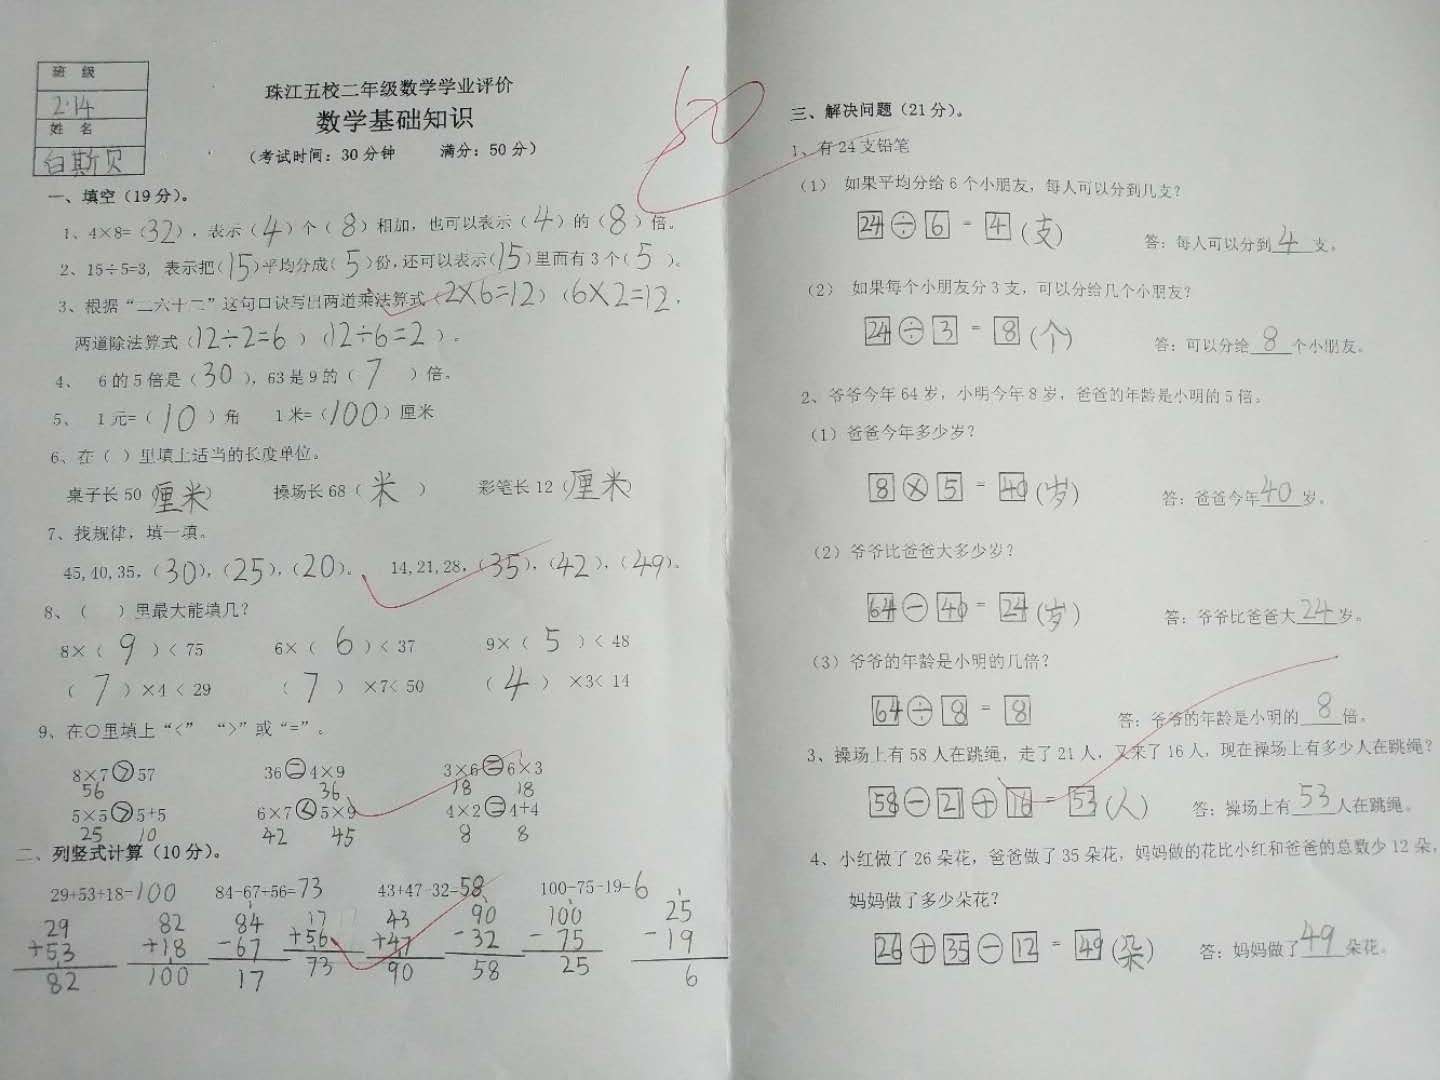 班 级
2.14
姓 名
白斯贝
珠江五校二年级数学学业评价
数学基础知识
（考试时间：30分钟 满分：50分）
50
一、填空（19分）。
1、4×8=（32），表示（4）个（8）相加，也可以表示（4）的（8）倍。
2、15÷5=3，表示把（15）平均分成（5）份，还可以表示（15）里面有3个（5）。
3、根据“二六十二”这句口诀写出两道乘法算式（2×6=12）（6×2=12，
两道除法算式（12÷2=6）（12÷6=2）。
4、 6的5倍是（30），63是9的（7）倍。
5、 1元=（10）角 1米=（100）厘米
6、在（ ）里填上适当的长度单位。
桌子长50（厘米） 操场长68（米） 彩笔长12（厘米）
7、找规律，填一填。
45,40,35,（30），（25），（20）。 14,21,28,（35），（42），（49）。
8、（ ）里最大能填几？
8×（9）< 75 6×（6）< 37 9×（5）< 48
（7）×4 < 29 （7）×7< 50 （4）×3< 14
9、在○里填上“<” “>”或“=”。
8×7>57 36=4×9 3×6=6×3
56 36 18 18
5×5>5+5 6×7<5×9 4×2=4+4
25 10 42 45 8 8
二、列竖式计算（10分）。
29+53+18=100 84-67+56=73 43+47-32=58 100-75-19=6
29 82 84 17 43 90 100 25
+53 +18 -67 +56 +47 -32 -75 -19
82 100 17 73 90 58 25 6
三、解决问题（21分）。
1、有24支铅笔
（1） 如果平均分给6个小朋友，每人可以分到几支？
24÷6=4（支） 答：每人可以分到4支。
（2） 如果每个小朋友分3支，可以分给几个小朋友？
24÷3=8（个） 答：可以分给8个小朋友。
2、爷爷今年64岁，小明今年8岁，爸爸的年龄是小明的5倍。
（1）爸爸今年多少岁？
8×5=40（岁） 答：爸爸今年40岁。
（2）爷爷比爸爸大多少岁？
64-40=24（岁） 答：爷爷比爸爸大24岁。
（3）爷爷的年龄是小明的几倍？
64÷8=8 答：爷爷的年龄是小明的8倍。
3、操场上有58人在跳绳，走了21人，又来了16人，现在操场上有多少人在跳绳？
58-21+16=53（人） 答：操场上有53人在跳绳。
4、小红做了26朵花，爸爸做了35朵花，妈妈做的花比小红和爸爸的总数少12朵，
妈妈做了多少朵花？
26+35-12=49（朵） 答：妈妈做了49朵花。